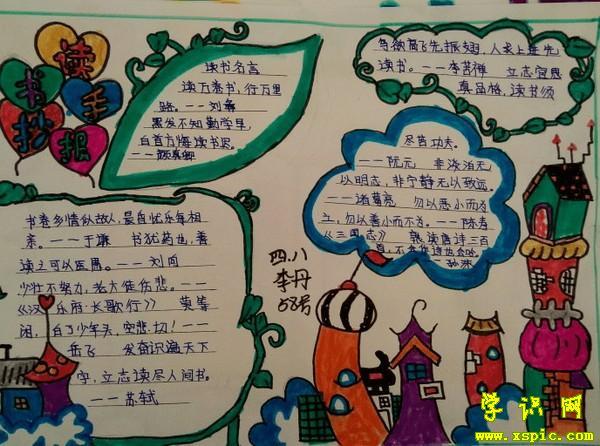 读书手抄报
读书名言
读万卷书,行万里
路。——刘彝
黑发不知勤学早,
白首方悔读书迟。
——颜真卿
鸟欲高飞先振翅,人求上进先
读书。——李苦禅 立志宜思
真品格,读书须
尽苦功夫。
——阮元 非淡泊无
以明志,非宁静无以致远。
——诸葛亮 勿以恶小而为
之,勿以善小而不为。——陈寿
《三国志》 熟读唐诗三百
首,不会作诗也会吟。
——孙洙
书卷多情似故人,晨昏忧乐每相
亲。——于谦 书犹药也,善
读之可以医愚。——刘向
少壮不努力,老大徒伤悲。——
《汉乐府·长歌行》 莫等
闲,白了少年头,空悲切!——
岳飞 发奋识遍天下
字,立志读尽人间书。
——苏轼
四.八
李丹
58号
学识网
www.xspic.com